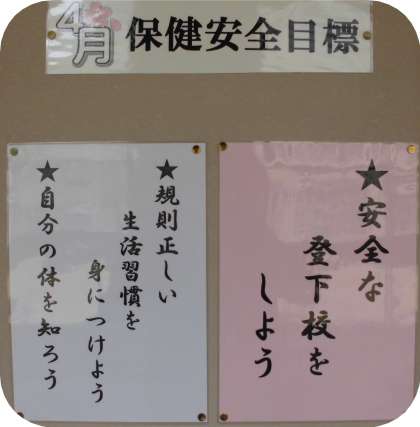 4月 保健安全目標
★安全な
登下校を
しよう
★規則正しい
生活習慣を
身につけよう
★自分の体を知ろう